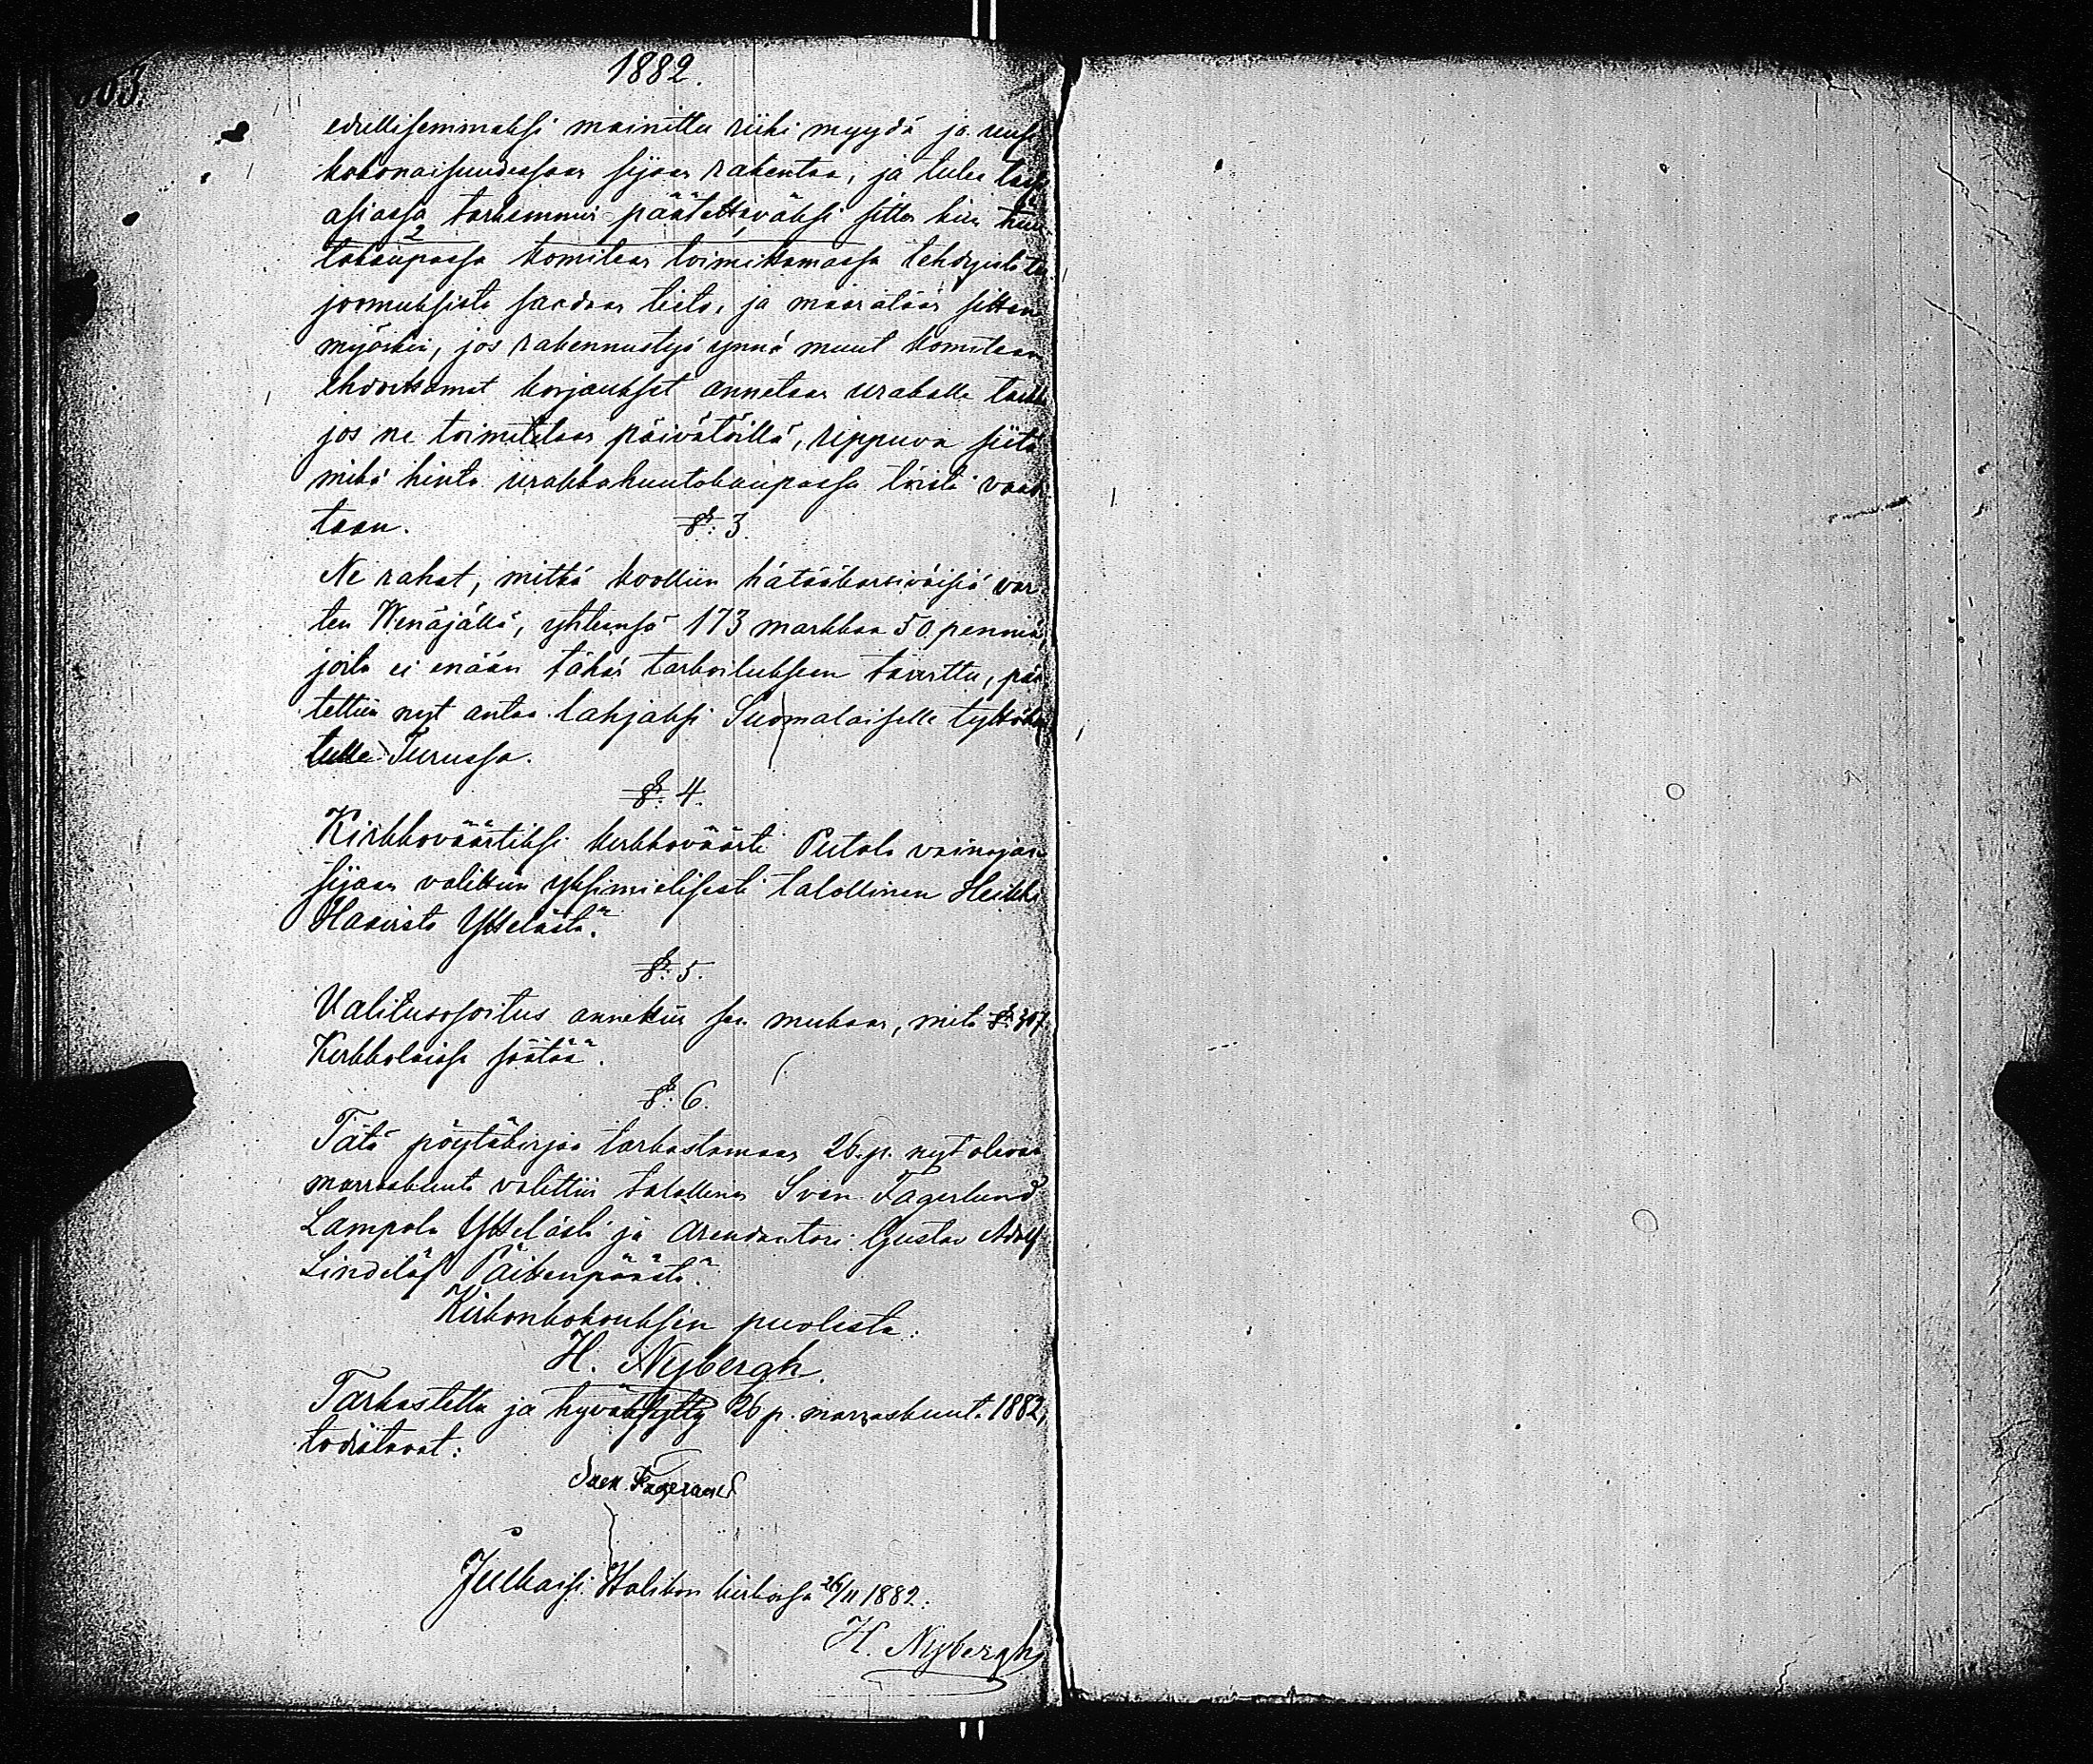 1882.
edullisemmaksi mainittu riihi myydä ja uusi
kokonaisuudessaan sijaan rakentaa, ja tulee tässä
asiassa tarkemmin päätettäväksi sitten kun huu-
tokaupassa komitean toimittamassa tehdyistä tar-
joomuksista saadaan tieto, ja määrätään sitten
myöskin, jos rakennustyö ynnä muut komitean
ehdoittamat korjaukset annetaan urakalle taikka
jos ne toimitetaan päivätöillä, rippuva siitä
mikä hinta urakkahuutokaupassa töistä vaadi-
taan.
§: 3.
Ne rahat, mitkä koottiin hätääkärsiväisiä var-
ten Wenäjällä, yhteensä 173 markkaa 50 penniä,
joita ei enään tähän tarkoitukseen tarvittu, pää-
tettiin nyt antaa lahjaksi Suomalaiselle tyttökou-
lulle Turussa.
§: 4.
Kirkkoväärtiksi kirkkoväärti Pietola vainajan
sijaan valittiin yksimielisesti talollinen Heikki
Haavisto Yttelästä.
§: 5.
Valitusosoitus annettiin sen mukaan, mitä §: 307
Kirkkolaissa säätää.
§: 6.
Tätä pöytäkirjaa tarkastamaan 26. p. nyt olevaa
marraskuuta valittiin talollinen Sven Fagerlund
Lampola Yttelästä ja arendantori Gustav Adolf
Lindelöf Päitenpäästä.
Kirkonkokouksen puolesta:
H. Nybergh.
Tarkastettu ja hyväksytty 26 p. marraskuuta 1882,
todistavat:
Sven Fagerlund
Julkaisi Halikon kirkossa 26/11 1882.
H. Nybergh